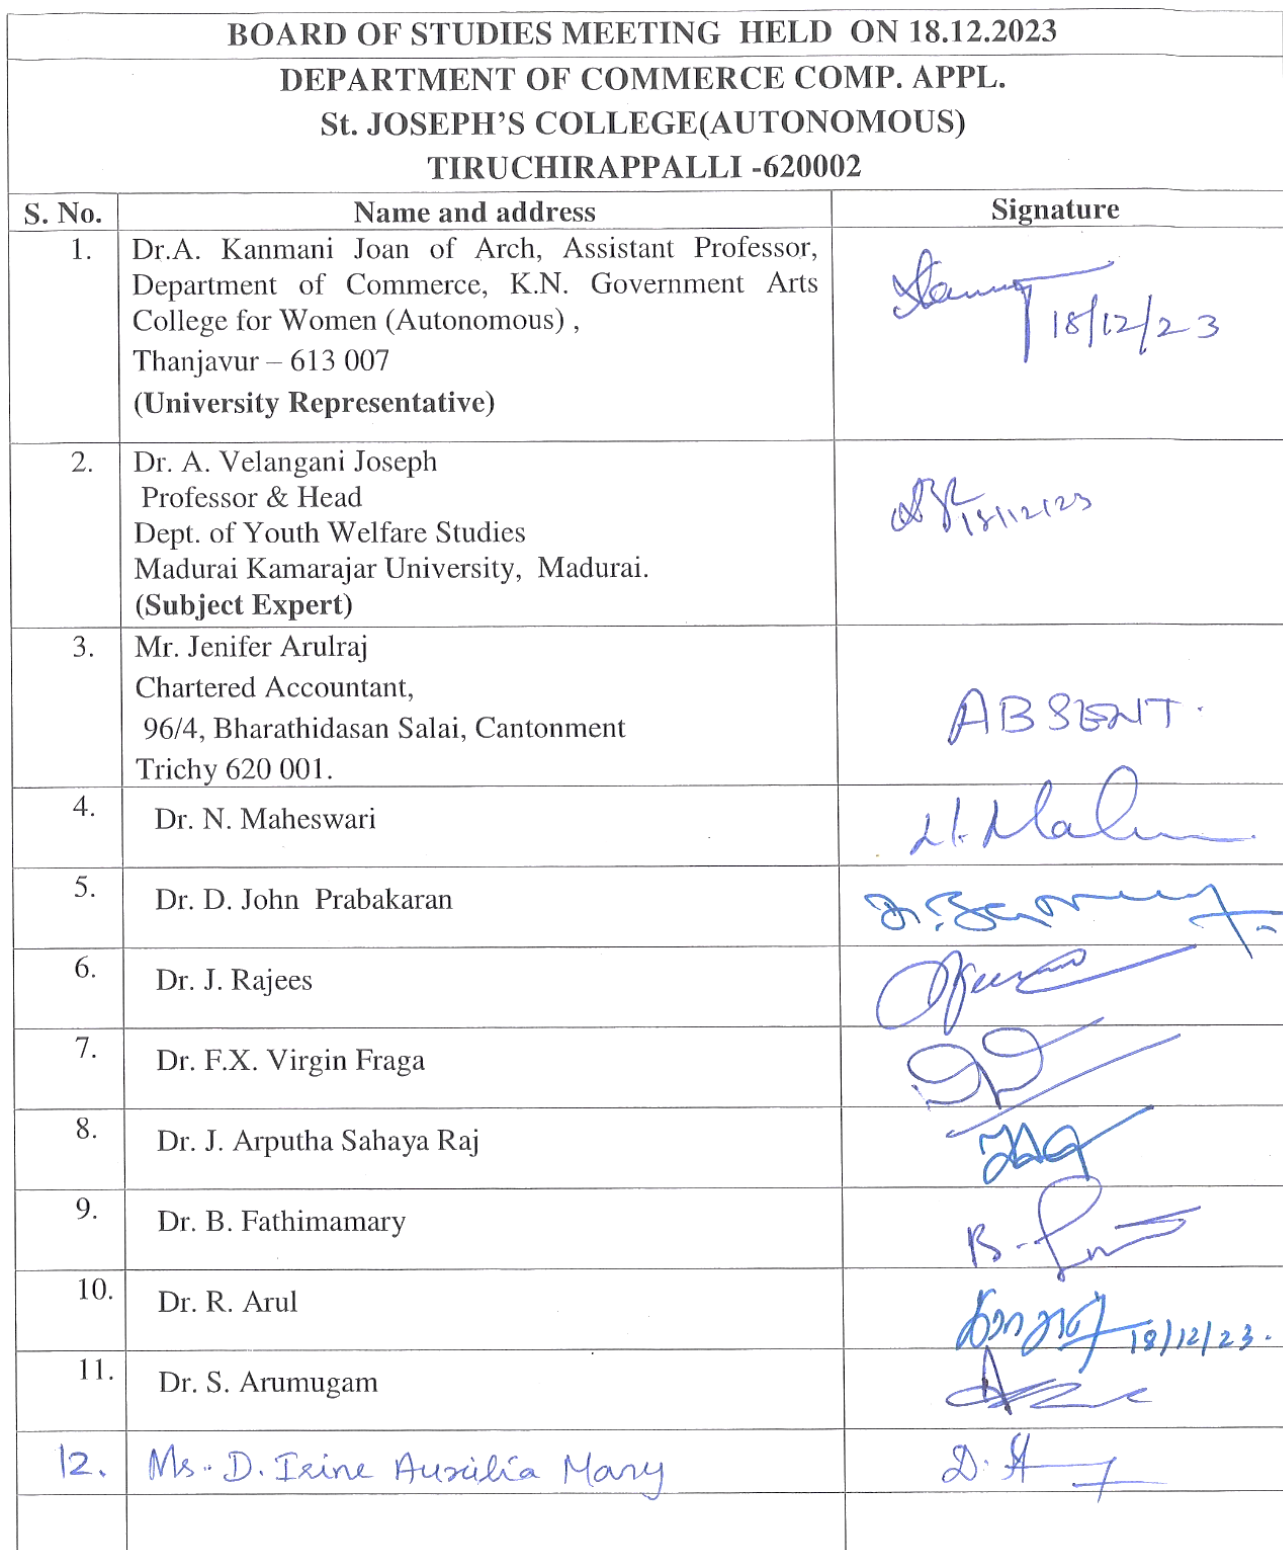 BOARD OF STUDIES MEETING HELD ON 18.12.2023
DEPARTMENT OF COMMERCE COMP. APPL.
St. JOSEPH'S COLLEGE(AUTONOMOUS)
TIRUCHIRAPPALLI -620002
S. No. Name and address Signature
1. Dr.A. Kanmani Joan of Arch, Assistant Professor,
Department of Commerce, K.N. Government Arts
College for Women (Autonomous) ,
18/12/23
Thanjavur – 613 007
(University Representative)
2. Dr. A. Velangani Joseph
Professor & Head
18/12/23
Dept. of Youth Welfare Studies
Madurai Kamarajar University, Madurai.
(Subject Expert)
3. Mr. Jenifer Arulraj
Chartered Accountant,
96/4, Bharathidasan Salai, Cantonment
ABSENT.
Trichy 620 001.
4. Dr. N. Maheswari
5. Dr. D. John Prabakaran
6. Dr. J. Rajees
7. Dr. F.X. Virgin Fraga
8. Dr. J. Arputha Sahaya Raj
9. Dr. B. Fathimamary
10. Dr. R. Arul 18/12/23.
11. Dr. S. Arumugam
12. Ms. D. Irine Auxilia Mary